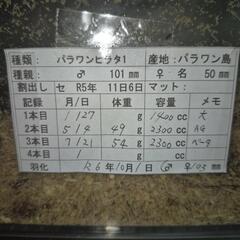 種類: パラワンヒラタ1 産地: パラワン島
種親: ♂ 101 mm ♀ 名 50 mm
割出し セ R5年 11日6日 マット:
記録 月/日 体重 容量 メモ
1本目 1/27 g 1400 cc 大
2本目 5/4 49 g 2300 cc AG
3本目 7/21 54 g 2300 cc ベータ
4本目 / g cc
羽化 R6年10月1日 ♂ ♀ 103 mm